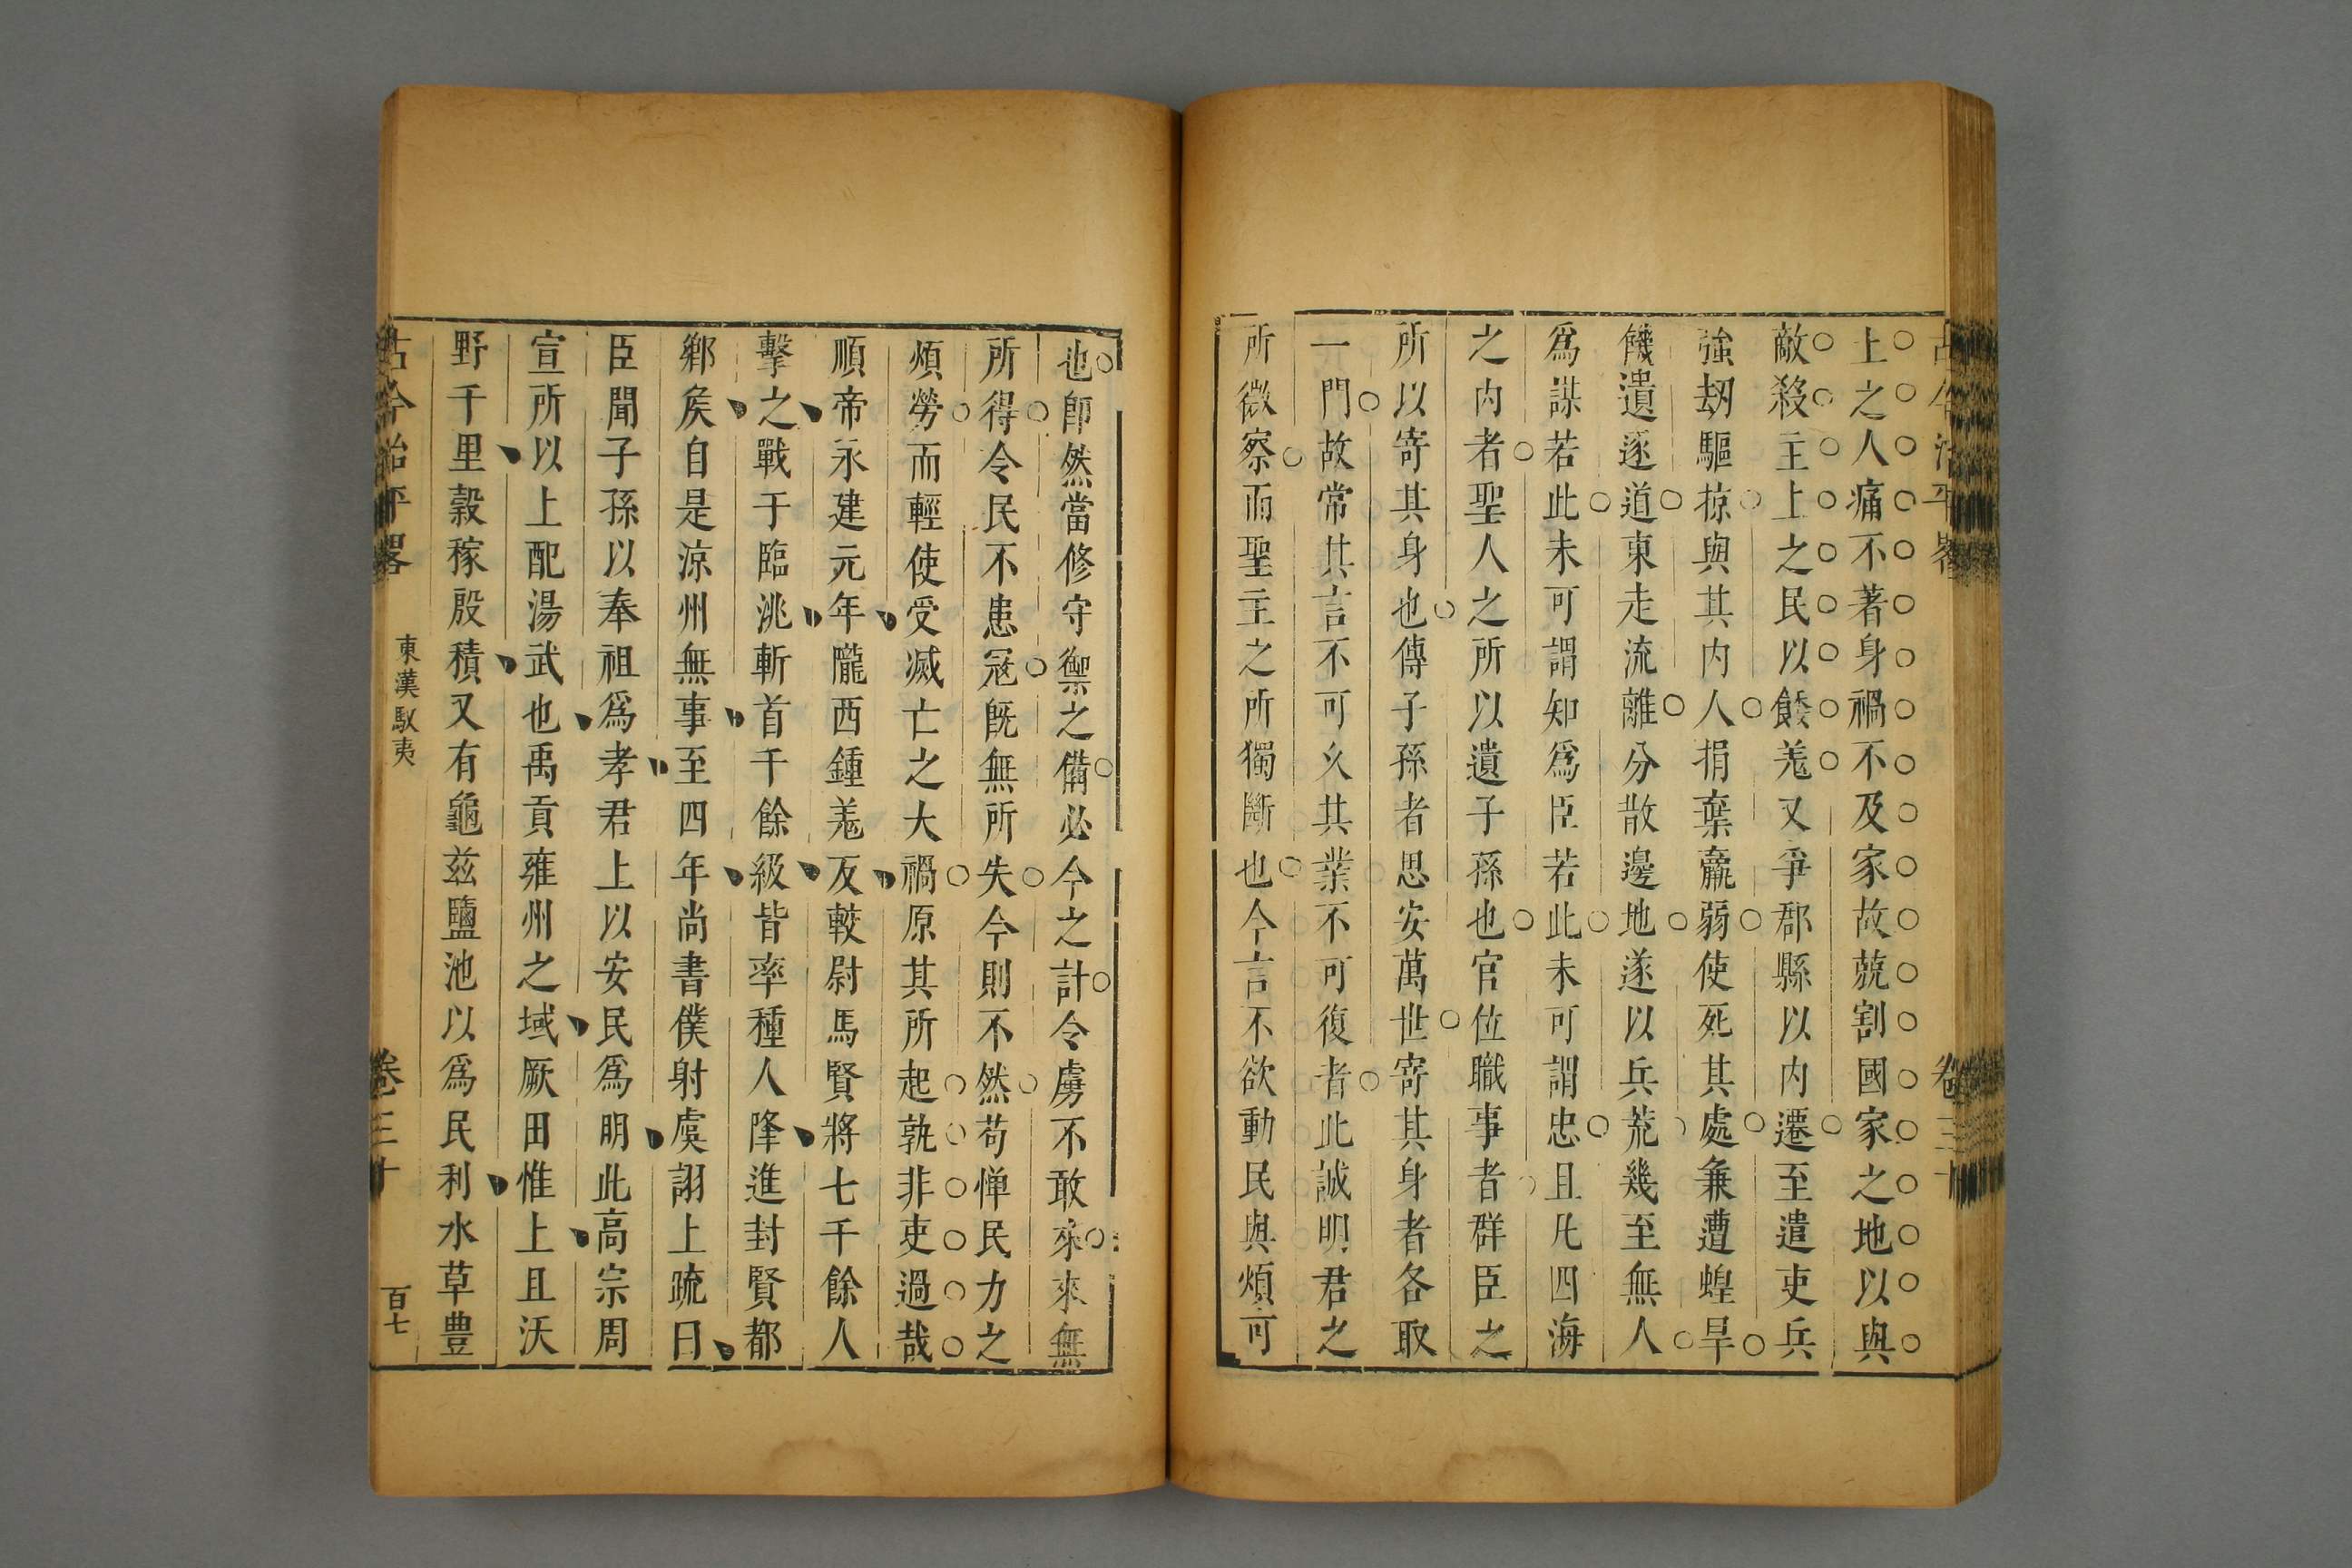 上之人痛不著身禍不及家故兢割國家之地以與
敵殺主上之民以餧羌又爭郡縣以内遷至遣吏兵
強刼驅掠與其内人捐棄羸弱使死其處兼遭蝗旱
饑遺逐道東走流離分散邊地遂以兵荒幾至無人
爲謀若此未可謂知爲臣若此未可謂忠且凡四海
之内者聖人之所以遺子孫也官位職事者群臣之
所以寄其身也傳子孫者思安萬世寄其身者各取
一門故常其言不可乆其業不可復者此誠明君之
所微察而聖主之所獨斷也今言不欲動民與煩可
也卽然當修守禦之備必今之計令虜不敢來來無
所得令民不患冦旣無所失今則不然苟惮民力之
煩勞而輕使受滅亡之大禍原其所起孰非吏過哉
順帝永建元年隴西鍾羌反較尉馬賢將七千餘人
擊之戰于臨洮斬首千餘級皆率種人降進封賢都
鄉矦自是涼州無事至四年尚書僕射虞詡上疏曰
臣聞子孫以奉祖爲孝君上以安民爲明此高宗周
宣所以上配湯武也禹貢雍州之域厥田惟上且沃
野千里穀稼殷積又有龜兹鹽池以爲民利水草豊
古今治平畧 東漢馭夷 卷三十 百七